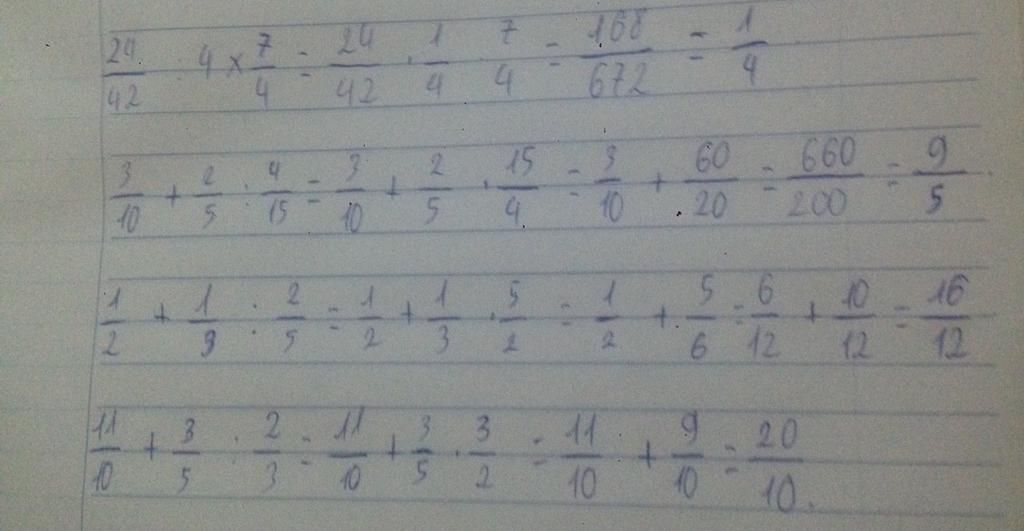 24/42 : 4 × 7/4 = 24/42 · 1/4 · 7/4 = 168/672 = 1/4
3/10 + 2/5 : 4/15 = 3/10 + 2/5 · 15/4 = 3/10 + 60/20 = 660/200 = 9/5
1/2 + 1/3 : 2/5 = 1/2 + 1/3 · 5/2 = 1/2 + 5/6 = 6/12 + 10/12 = 16/12
11/10 + 3/5 : 2/3 = 11/10 + 3/5 · 3/2 = 11/10 + 9/10 = 20/10.